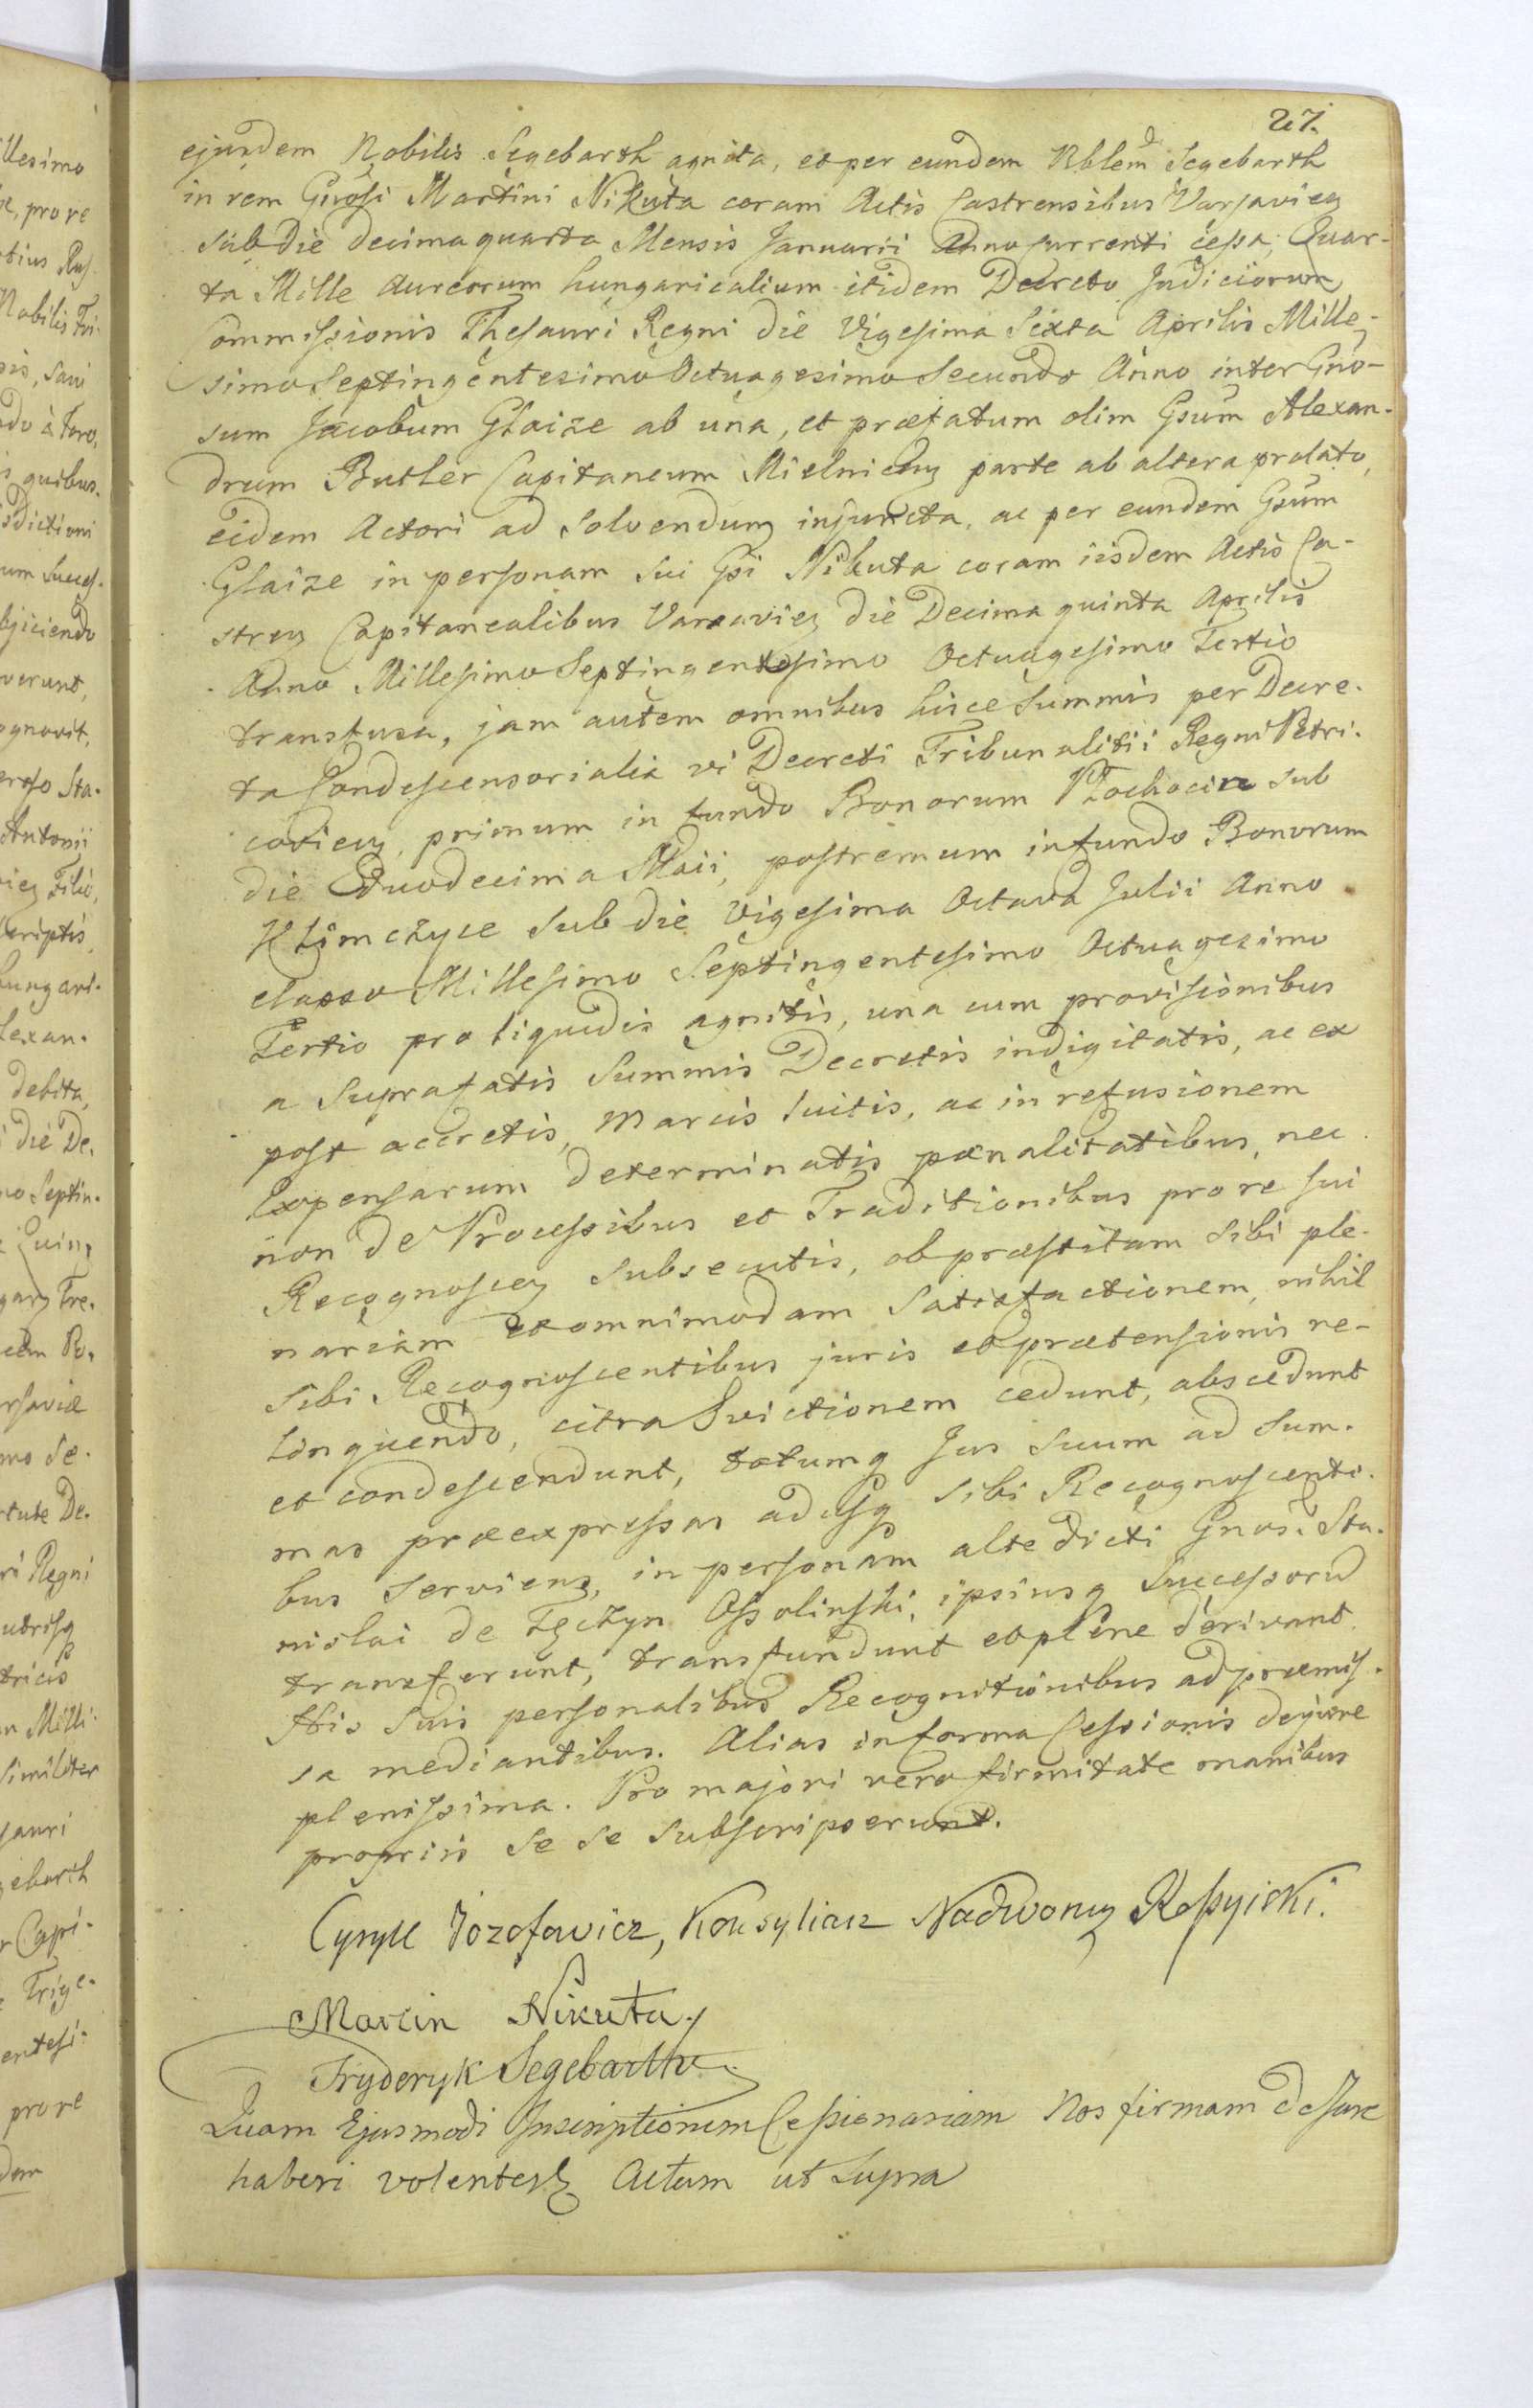 27.
ejusdem Nobilis Segebarth agnita, et per eundem Nblem Segebarth
in rem Gnosi Martini Nikuta coram Actis Castrensibus Varsavien
sub die decima quarta Mensis Januarii Anno currenti cessa; Quar-
ta Mille Aureorum hungaricalium itidem Decreto Judiciorum
Commissionis Thesauri Regni die Vigesima Sexta Aprilis Mille-
simo Septingentesimo Octuagesimo Secundo Anno inter Gno-
sum Jacobum Glaize ab una, et præfatum olim Gsum Alexan-
drum Butler Capitaneum Mielnicen parte ab altera prolato,
eidem Actori ad solvendum injuncta, ac per eundem Gsum
Glaize in personam sui Gsi Nikuta coram iisdem Actis Ca-
stren Capitanealibus Varsavien die Decima quinta Aprilis
Anno Millesimo Septingentesimo Octuagesimo Tertio
transfusa, jam autem omnibus hisce Summis per Decre-
ta Condescensorialia vi Decreti Tribunalitii Regni Petri-
covien, primum in fundo Bonorum Kłochocin sub
die Duodecima Maii, postremum in fundo Bonorum
Klimczyce sub die Vigesima Octava Julii Anno
elapso Millesimo Septingentesimo Octuagesimo
Tertio pro liquidis agnitis, una cum provisionibus
a suprafatis Summis Decretis indigitatis, ac ex
post accretis, Marcis luitis, ac in refusionem
Expensarum determinatis pænalitatibus, nec
non de Processibus et Traditionibus pro re sui
Recognoscen subsecutis, ob præstitam sibi ple-
nariam et omnimodam Satisfactionem, nihil
sibi Recognoscentibus juris et prætensionis re-
linquendo, citra Evictionem cedunt, abscedunt
et condescendunt, totumq Jus suum ad Sum-
mas præexpressas adusq sibi Recognoscenti-
bus serviens, in personam alte dicti Gnosi Sta-
nislai de Tęczyn Ossolinski, ipsiusq Successorum
transferunt, transfundunt et plene derivant.
His suis personalibus Recognitionibus ad præmis-
sa mediantibus. Alias in forma Cessionis de jure
plenissima. Pro majori vero firmitate manibus
propriis se se subscripserunt.
Cyryll Jozefowicz, Konsyliarz Nadworny Rossyiski.
Marcin Nikuta.
Fryderyk Segebarth
Quam Ejusmodi Inscriptionem Cessionariam Nos firmam de Jure
haberi volentes Actum ut Supra